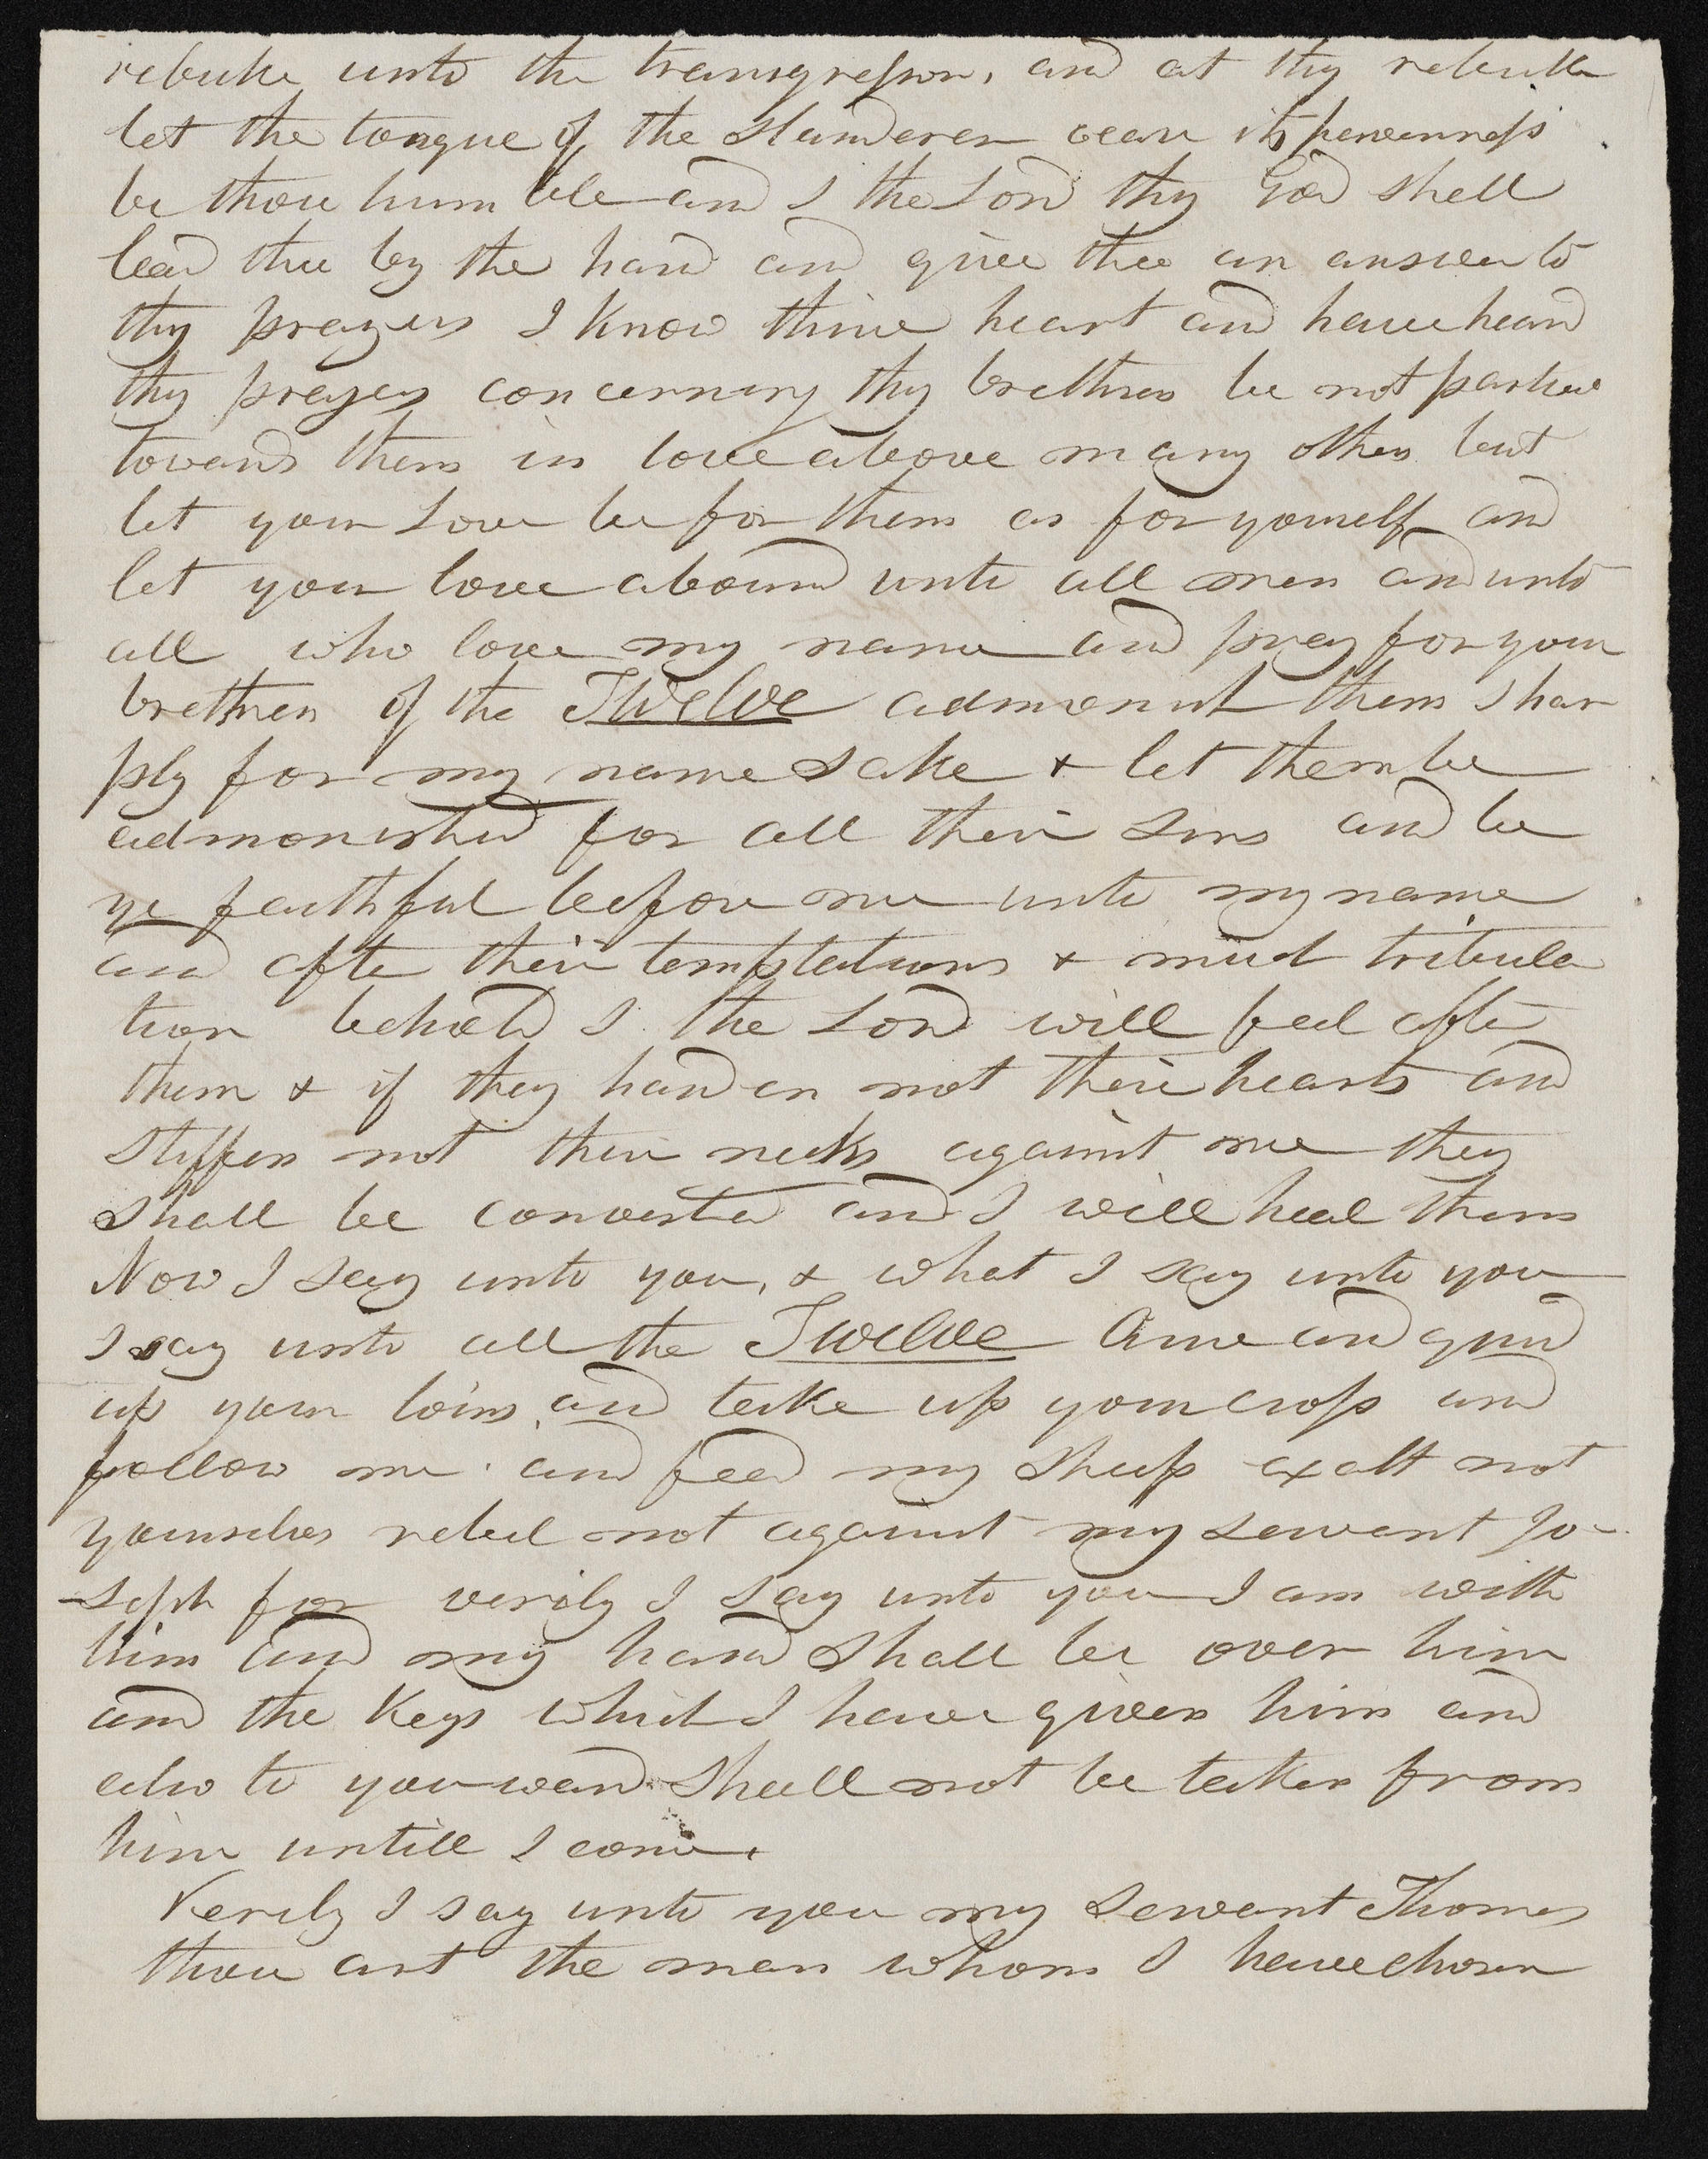 rebuke unto the transgressor, and at thy rebuke
let the tongue of the slanderer cease its perverness
be thou hum ble and I the Lord thy God shall
lead thee by the hand and give thee an answer to
thy prayers I know thine heart and have heard
thy prayers concerning thy brethren be not partial
towards them in love above many others but
let your Love be for them as for yourself and
let your love abound unto all men and unto
all who love my name and pray for your
brethren of the Twelve admonish them shar
ply for my name sake & let them be
admonished for all their Sins and be
ye faithful before me unto my name
and after their temptations & much tribula
tion behold I the Lord will feel after
them & if they harden not their hearts and
stiffen not their necks against me they
shall be converted and I will heal them
Now I say unto you, & what I say unto you
I say unto all the Twelve Arise and gird
up your loins and take up your cross and
follow me and feed my Sheep exalt not
yourselves rebel not against my servant Jo-
-seph for verily I say unto you I am with
him and my hand shall be over him
and the Keys which I have given him and
also to youward shall not be taken from
him untill I come.
Verily I say unto you my servant Thomas
thou art the man whom I have chosen